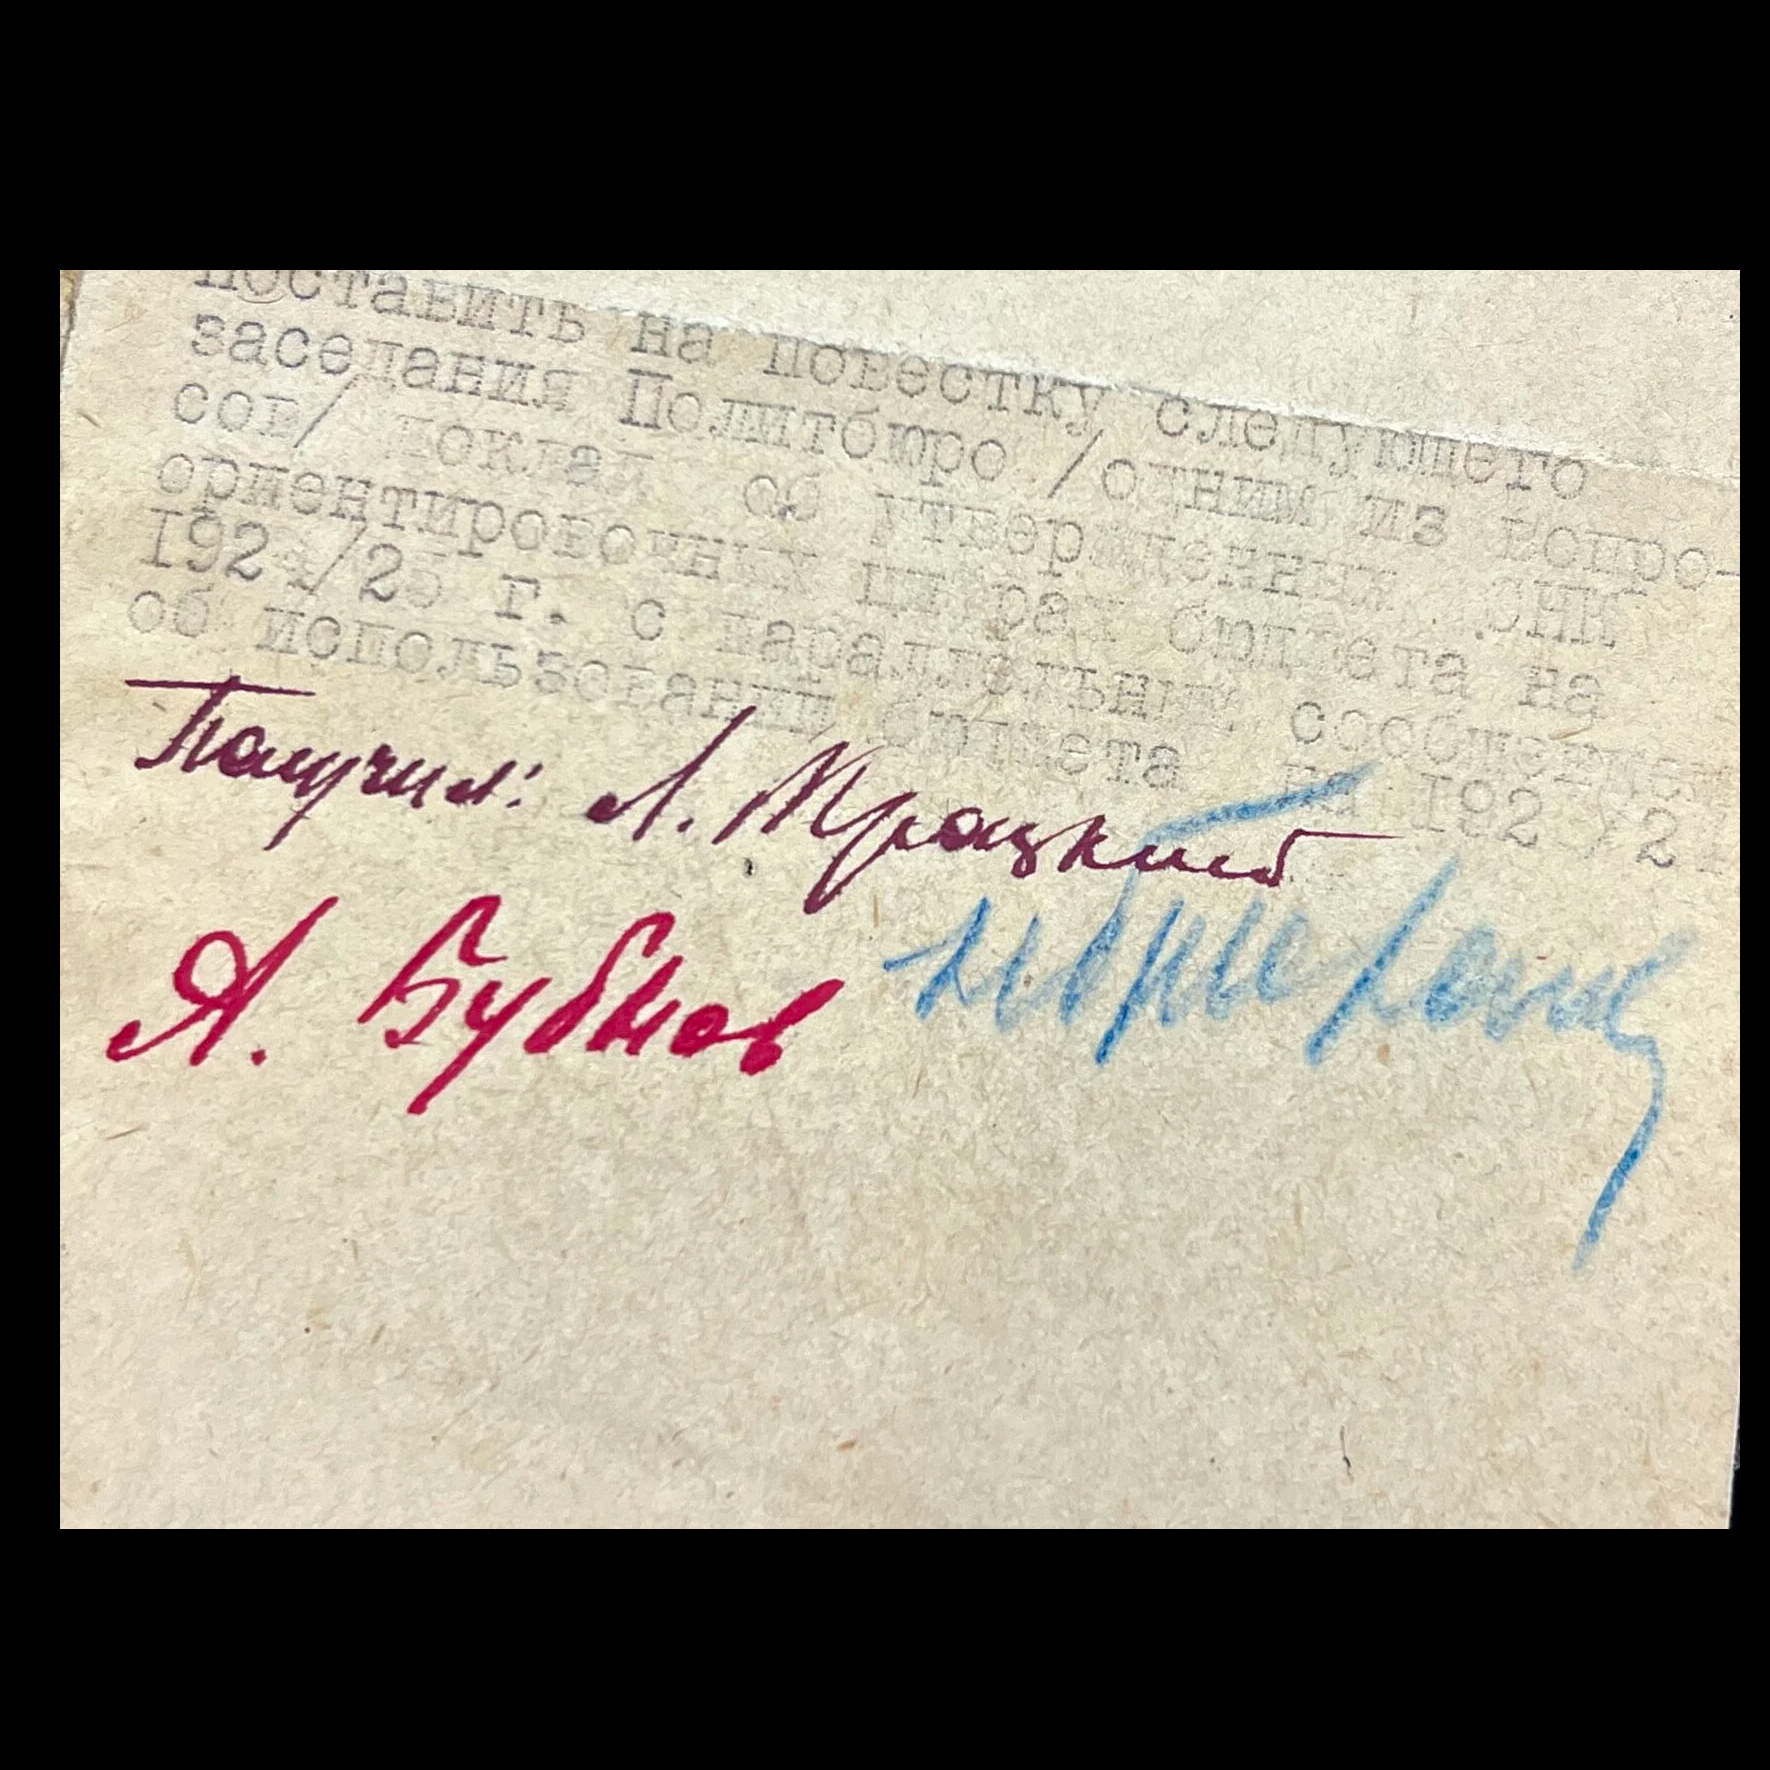 поставить на повестку следующего
заседания Политбюро /одним из вопро-
сов/ доклад об утвержденных СНК
ориентировочных цифрах бюджета на
1924/25 г. с параллельным сообщением
об использовании бюджета на 192 /2
Получил: Л. Троцкий
А. Бубнов